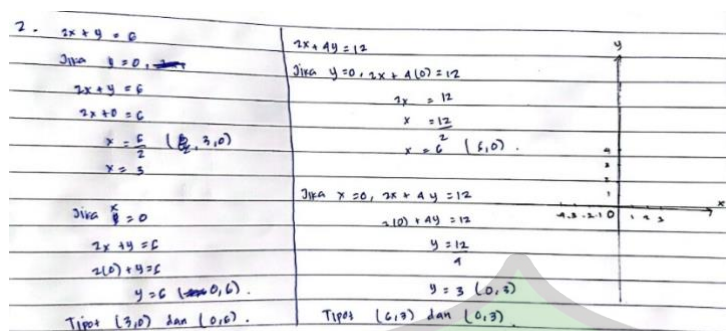 2. 2x + y = 6
Jika y = 0,
2x + y = 6
2x + 0 = 6
x = 6/2 (3,0)
x = 3
Jika x = 0
2x + y = 6
2(0) + y = 6
y = 6 (0,6).
Tipot (3,0) dan (0,6).
2x + 4y = 12
Jika y=0, 2x + 4(0) = 12
2x = 12
x = 12/2
x = 6 (6,0).
Jika x = 0, 2x + 4y = 12
2(0) + 4y = 12
y = 12/4
y = 3 (0,3)
Tipot (6,3) dan (0,3)
y
4
3
2
1
x
-4 -3 -2 -1 0 1 2 3